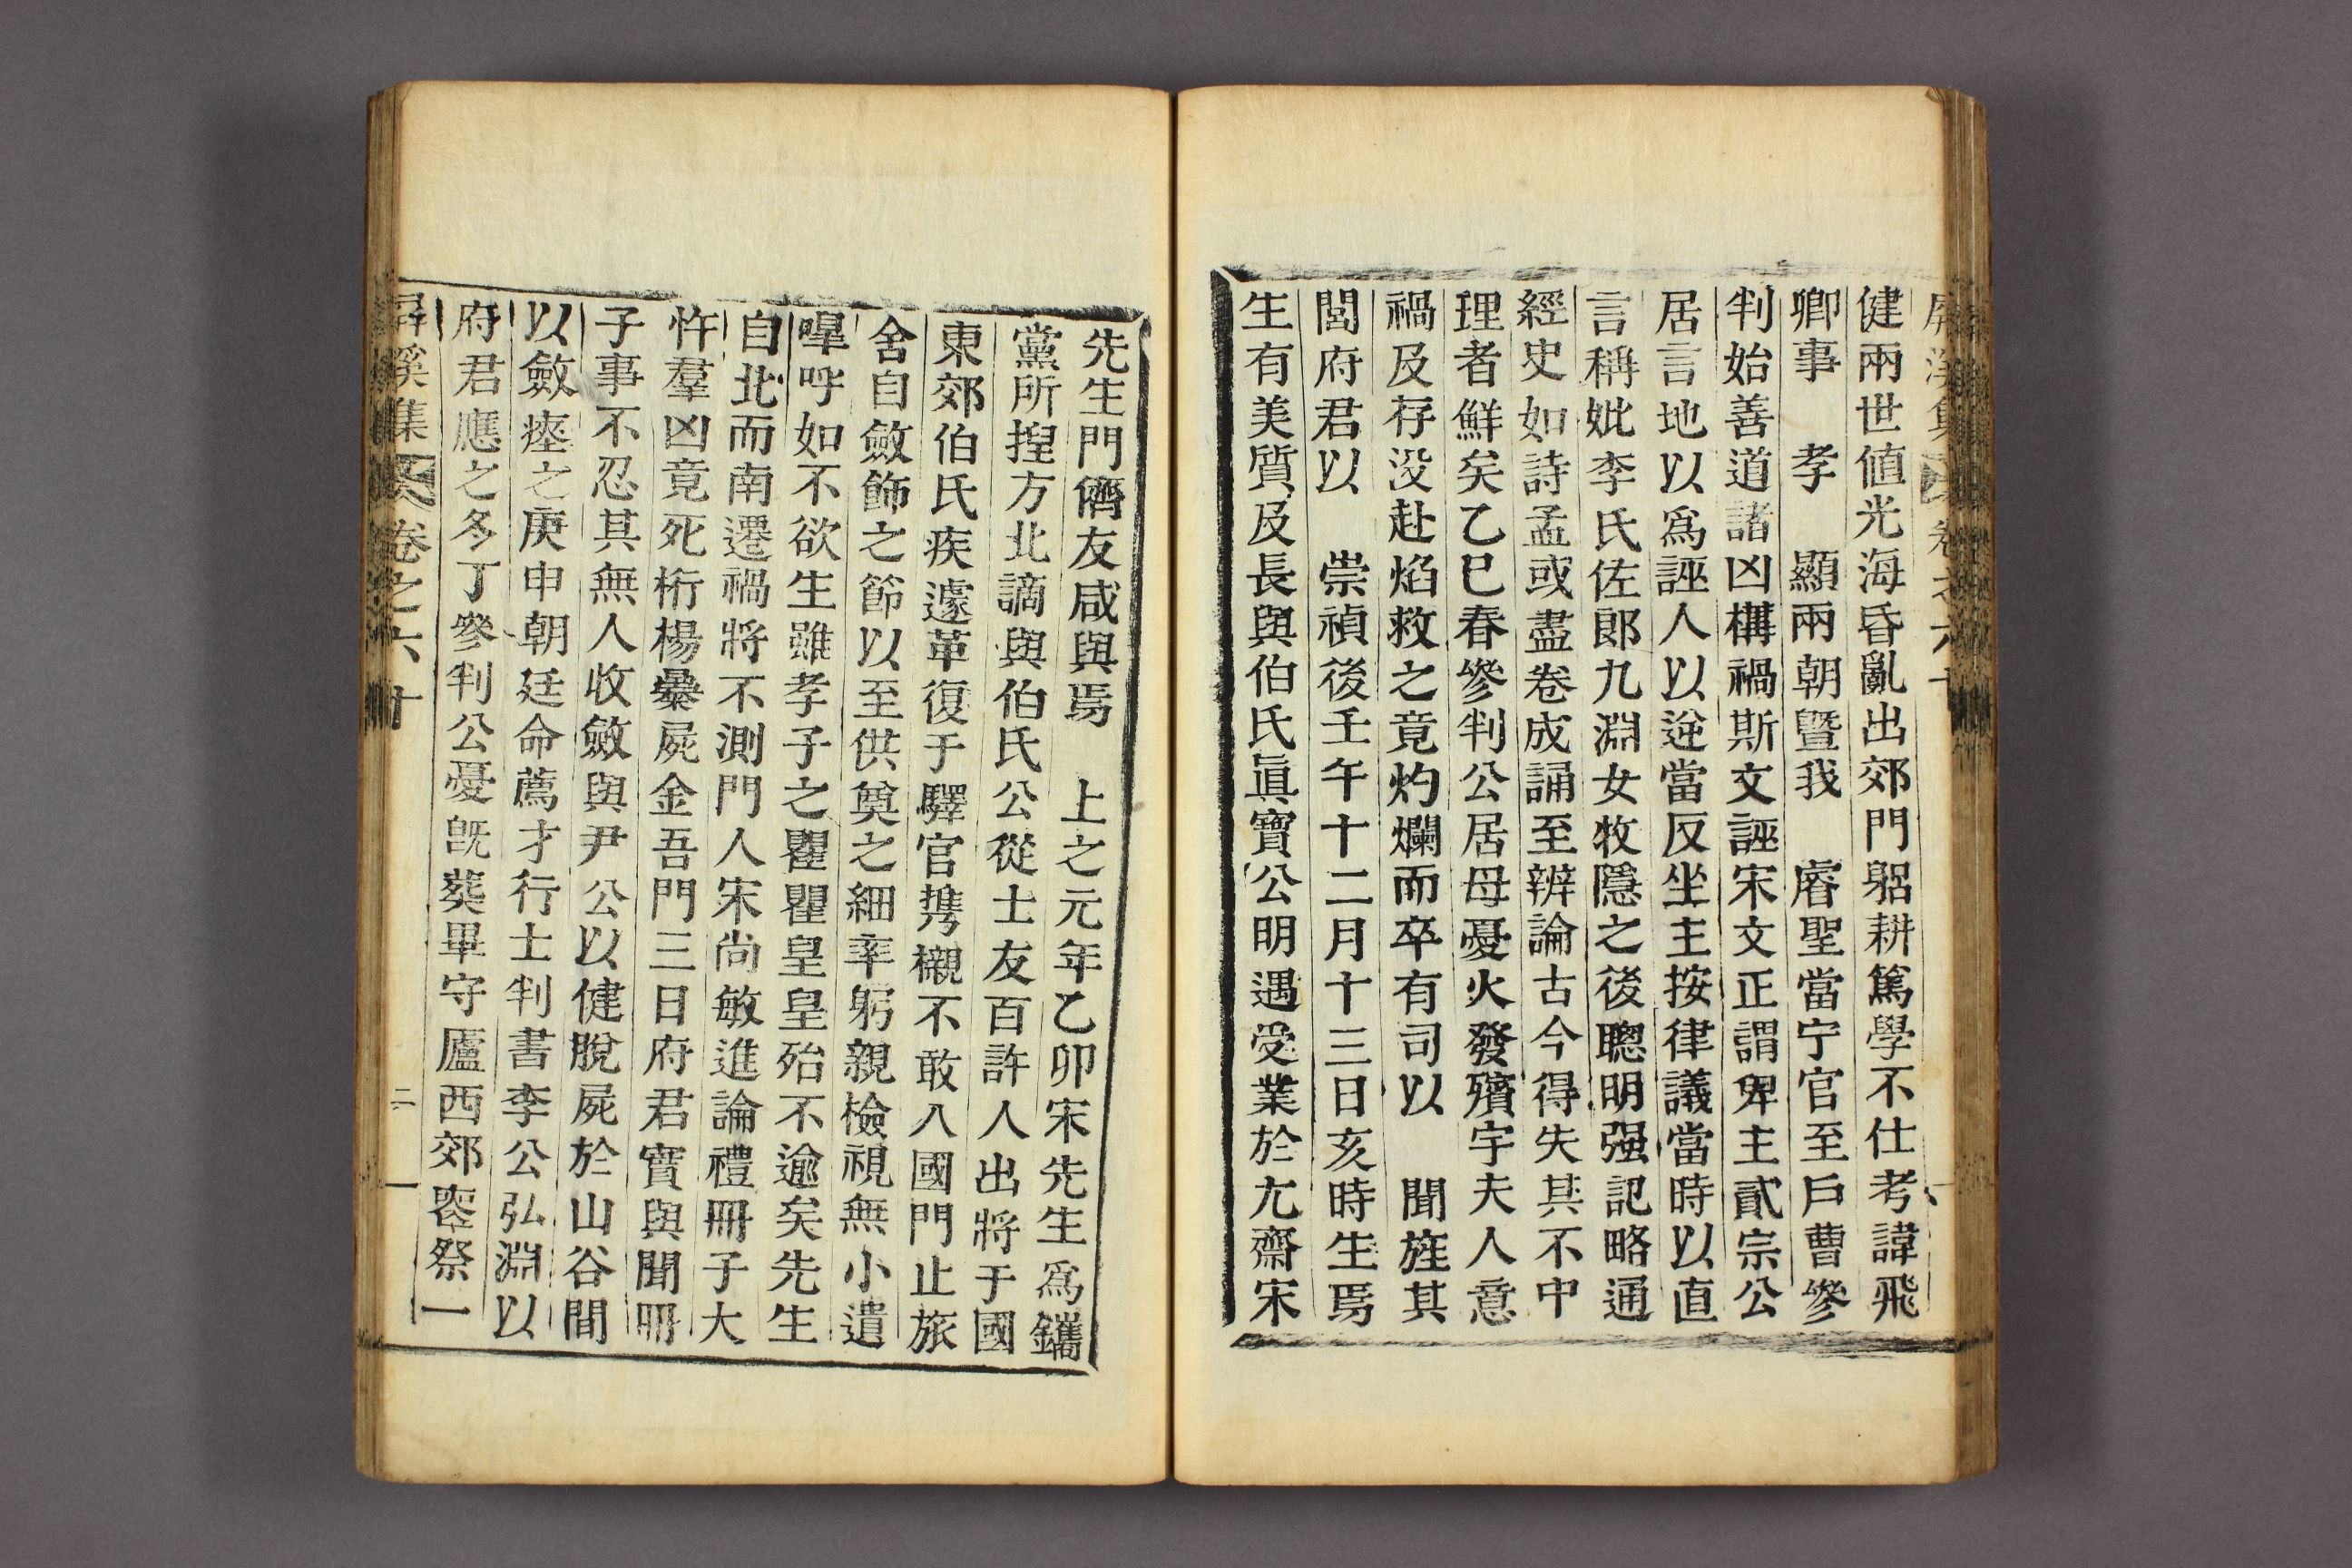 健兩世値光海昏亂出郊門躬耕篤學不仕考諱飛
卿事　孝　顯兩朝曁我　睿聖當宁官至戶曹參
判始善道諸凶構禍斯文誣宋文正謂卑主貳宗公
居言地以爲誣人以逆當反坐主按律議當時以直
言稱妣李氏佐郞九淵女牧隱之後聰明强記略通
經史如詩孟或盡卷成誦至辨論古今得失其不中
理者鮮矣乙巳春參判公居母憂火發殯宇夫人意
禍及存没赴焰救之竟灼爛而卒有司以　聞旌其
閭府君以　崇禎後壬午十二月十三日亥時生焉
生有美質及長與伯氏眞寶公明遇受業於尤齋宋
先生門儕友咸與焉　上之元年乙卯宋先生爲鑴
黨所揑方北謫與伯氏公從士友百許人出將于國
東郊伯氏疾遽革復于驛官携櫬不敢入國門止旅
舍自斂飾之節以至供奠之細率躬親檢視無小遺
嘷呼如不欲生雖孝子之瞿瞿皇皇殆不逾矣先生
自北而南遷禍將不測門人宋尙敏進論禮冊子大
忤羣凶竟死桁楊曓屍金吾門三日府君實與聞冊
子事不忍其無人收斂與尹公以健脫屍於山谷間
以斂瘞之庚申朝廷命薦才行士判書李公弘淵以
府君應之冬丁參判公憂旣葬畢守廬西郊密祭一
屛溪集
卷之六十
二